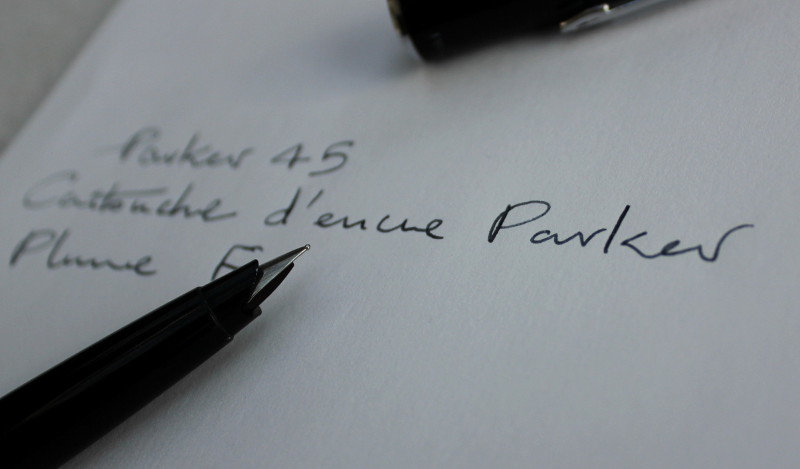 Parker 45
Cartouche d'encre Parker
Plume F